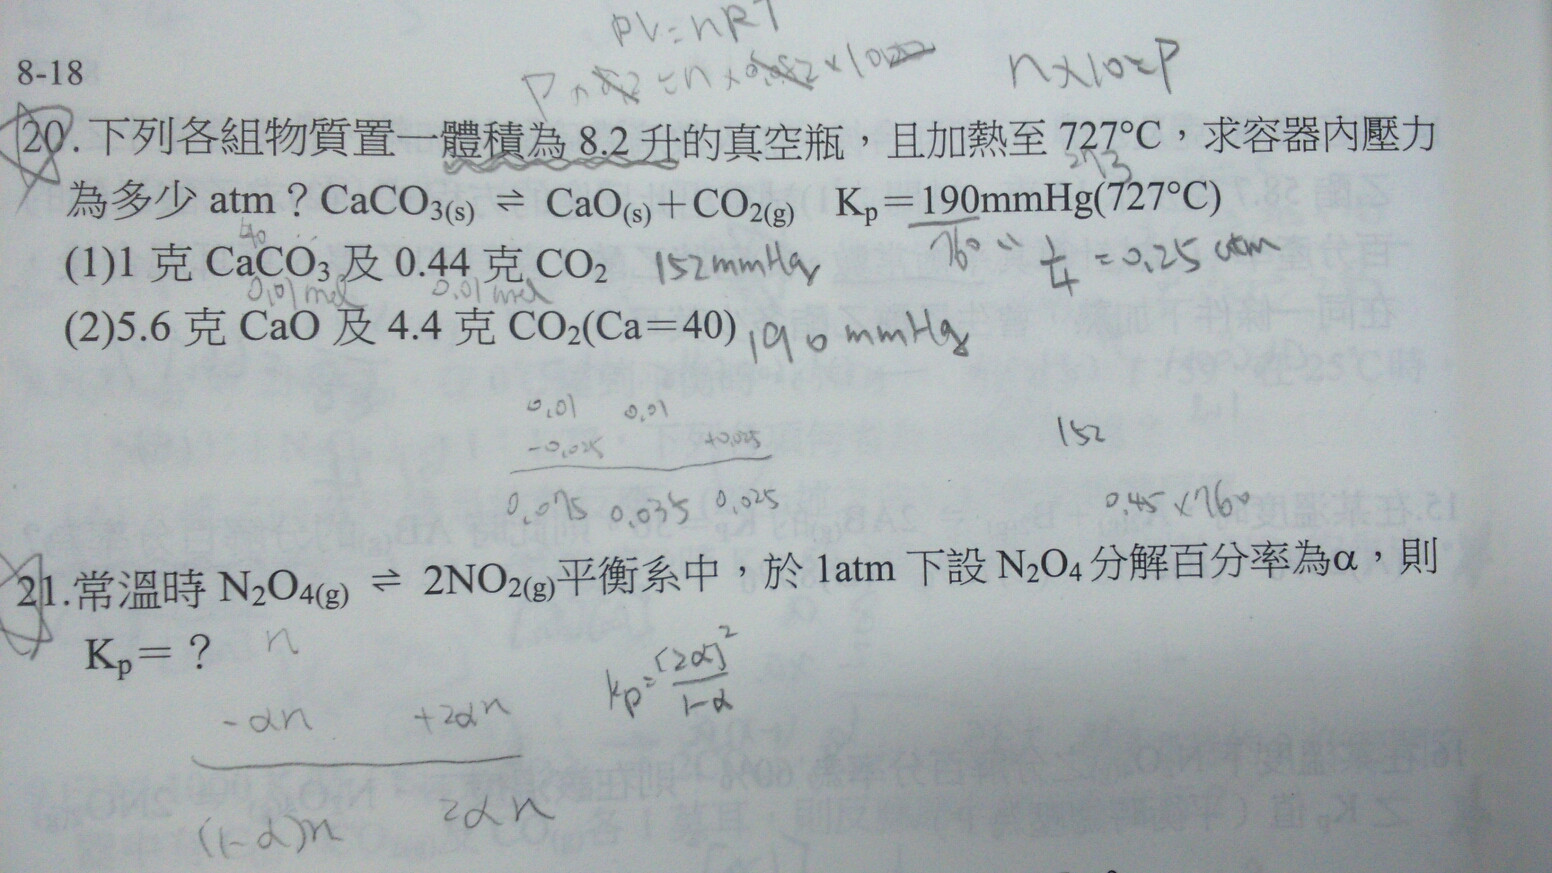 PV=nRT
P×8.2=n×0.082×1000
n×10=P
8-18
20.下列各組物質置一體積為 8.2 升的真空瓶，且加熱至 727°C，求容器內壓力
273
為多少 atm？CaCO3(s) ⇌ CaO(s)＋CO2(g) Kp＝190mmHg(727°C)
40
760
1/4 = 0.25 atm
(1)1 克 CaCO3 及 0.44 克 CO2 152mmHg
0.01mol 0.01mol
(2)5.6 克 CaO 及 4.4 克 CO2(Ca＝40) 190mmHg
0.01 0.01
-0.025 +0.025
152
0.075 0.035 0.025
0.45×760
21.常溫時 N2O4(g) ⇌ 2NO2(g)平衡系中，於 1atm 下設 N2O4 分解百分率為α，則
Kp＝？
n
kp=[2α]²/1-α
-αn +2αn
(1-α)n 2αn